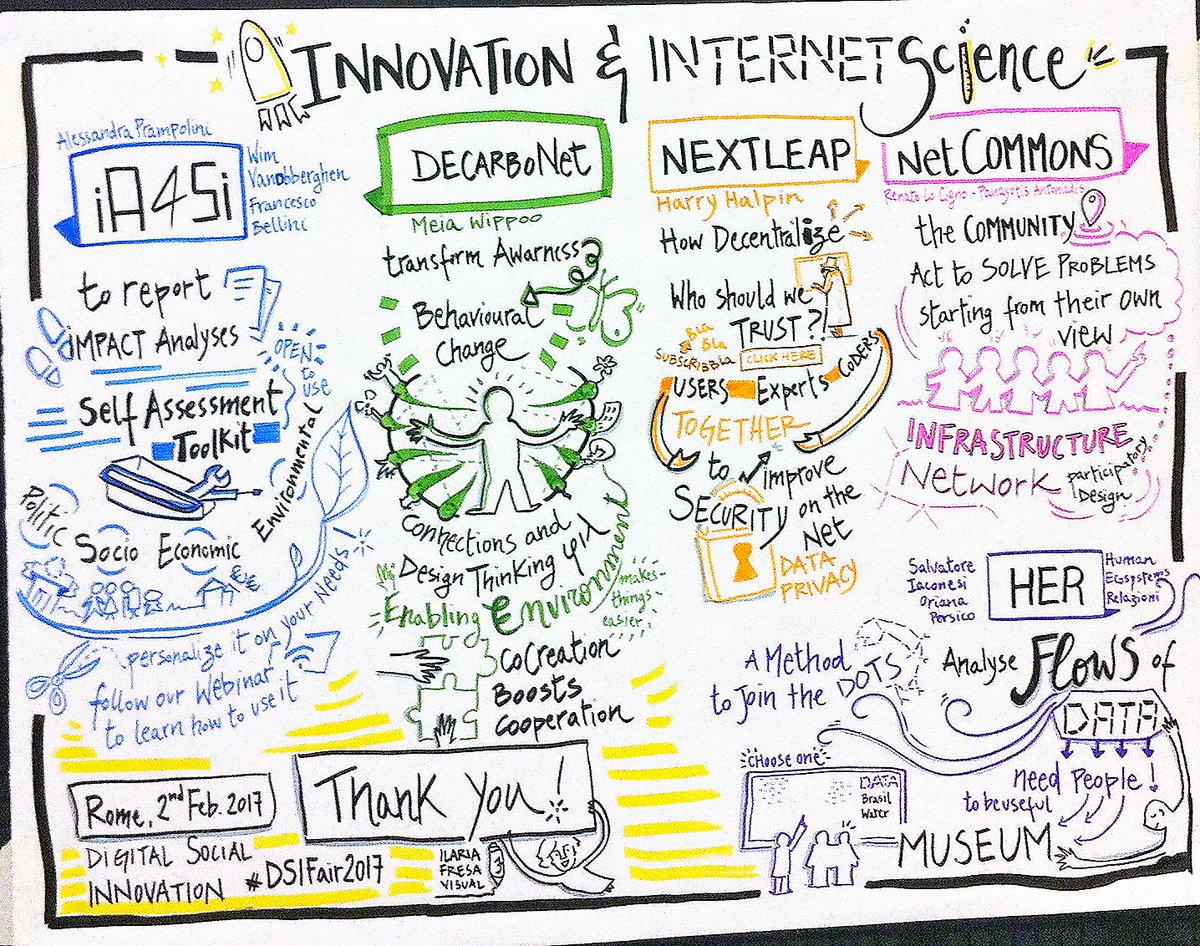 INNOVATION & INTERNET Science
Alessandra Prampolini
iA4Si
Wim
Vanobberghen
Francesco
Bellini
to report
iMPACT Analyses
OPEN
to
use
Self Assessment
Toolkit
Environmental
Politic
Socio Economic
personalize it on your Needs!
follow our Webinar
to learn how to use it
DECARBONet
Meia Wippoo
transform Awarness
Behavioural
Change
Connections and
Design Thinking
Enabling Environment
makes-
things-
easier
CoCreation
Boosts
Cooperation
NEXTLEAP
Harry Halpin
How Decentralize
Who should we
TRUST?!
Bla
Bla
SUBSCRIBBla
CLICK HERE
USERS Experts CODERS
TOGETHER
to improve
SECURITY on the
Net
DATA
PRIVACY
NetCOMMONS
Renato Lo Cigno - Panayotis Antoniadis
the COMMUNITY
Act to SOLVE PROBLEMS
starting from their own
view
INFRASTRUCTURE
Network
participatory
Design
Salvatore
Iaconesi
Oriana
Persico
HER
Human
Ecosystems
Relazioni
A Method
to Join the DOTS
Analyse FLOWS of
DATA
need People!
to be useful
CHoose one
DATA
Brasil
Water
MUSEUM
Rome, 2nd Feb. 2017
Thank you!
DIGITAL SOCIAL
INNOVATION #DSIFair2017
ILARIA
FRESA
VISUAL